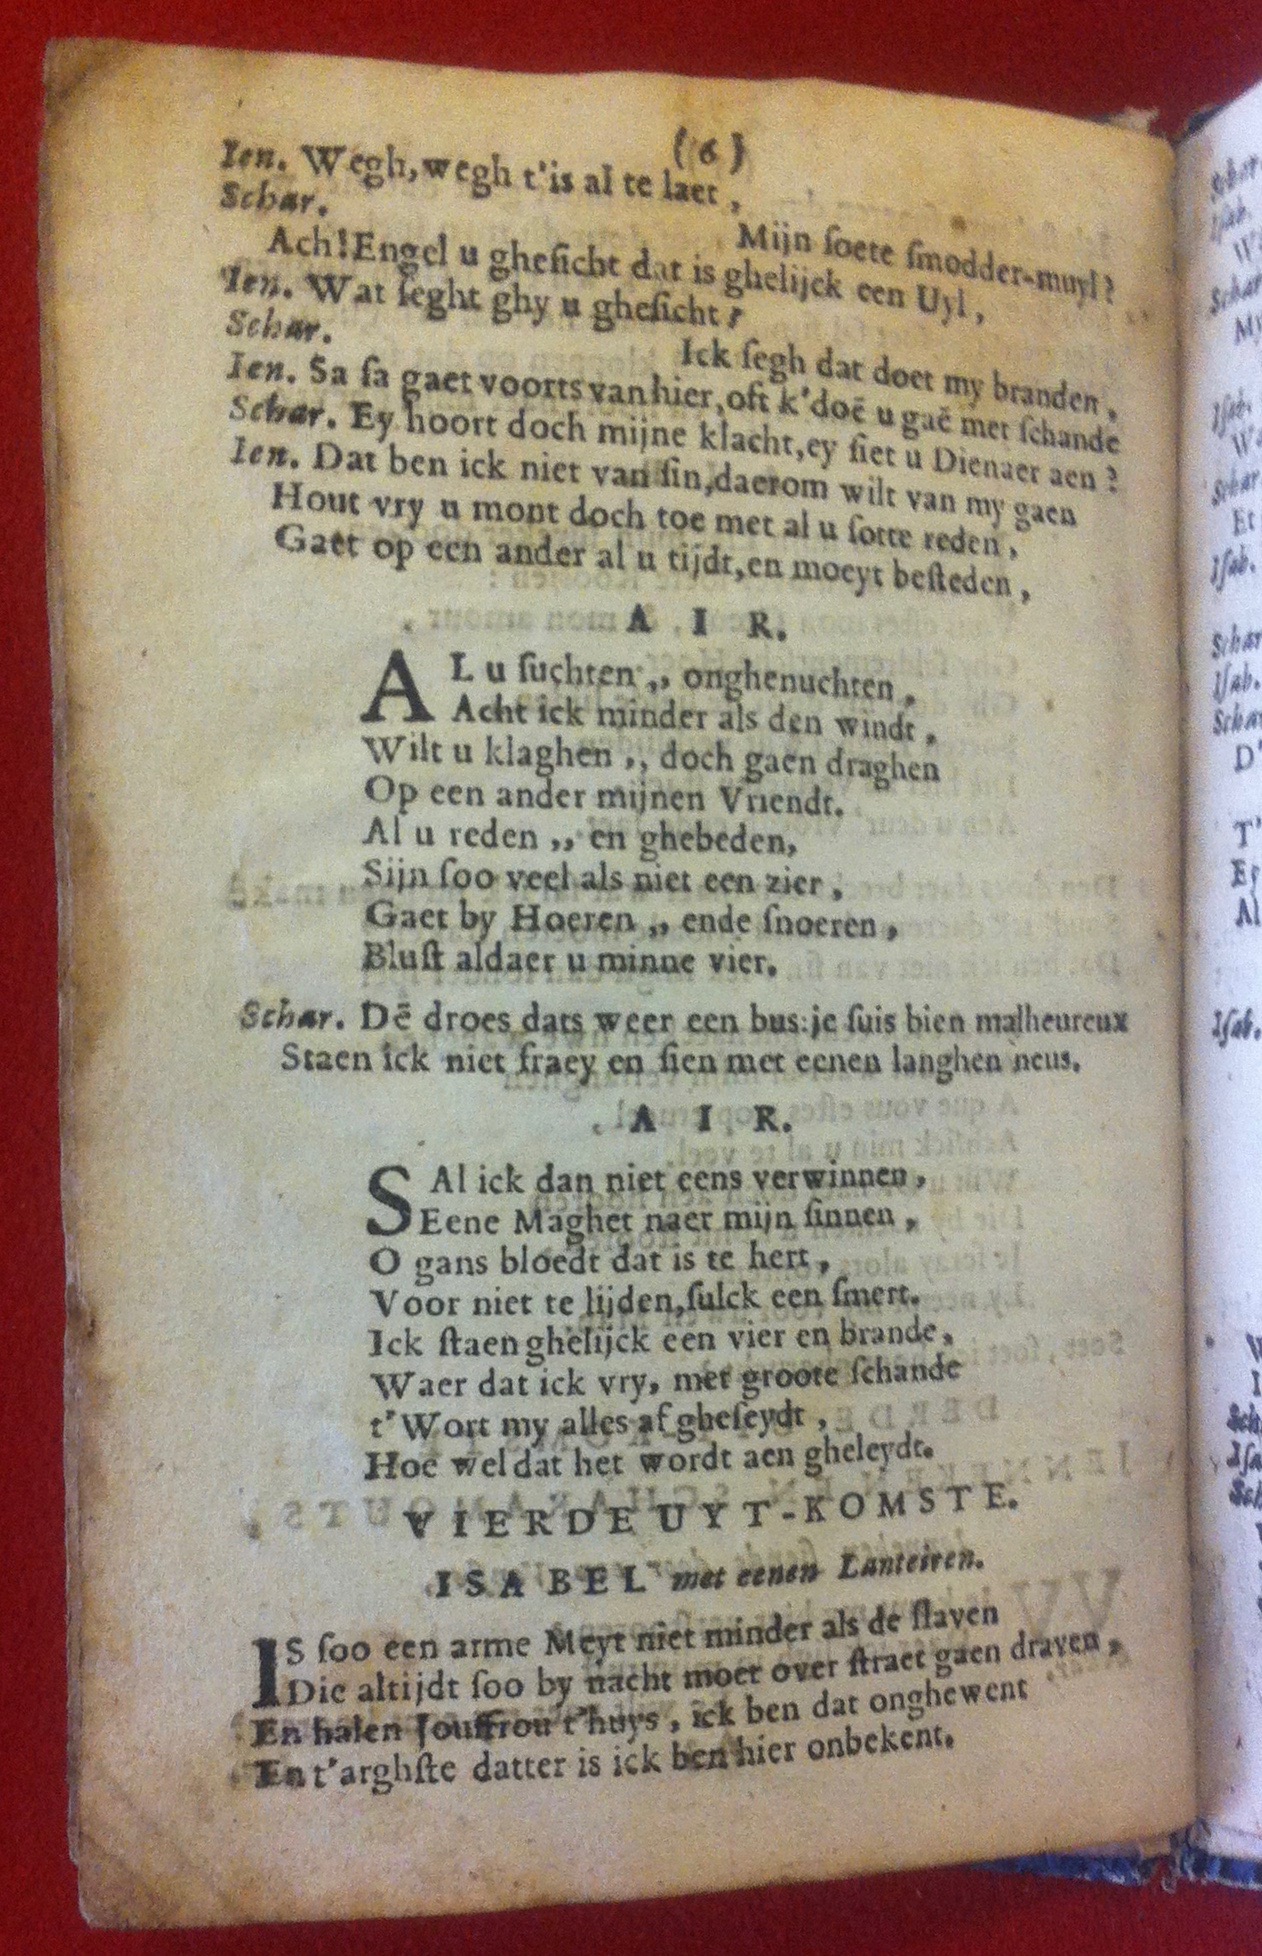 ( 6 )
Ien. Wegh, wegh t'is al te laet ,
Schar.
Mijn ſoete ſmodder-muyl ?
Ach! Engel u gheſicht dat is ghelijck een Uyl ,
Ien. Wat ſeght ghy u gheſicht ?
Schar.
Ick ſegh dat doet my branden ,
Ien. Sa ſa gaet voorts van hier, oft k'doē u gaē met ſchande
Schar. Ey hoort doch mijne klacht, ey ſiet u Dienaer aen ?
Ien. Dat ben ick niet van ſin, daerom wilt van my gaen
Hout vry u mont doch toe met al u ſotte reden ,
Gaet op een ander al u tijdt, en moeyt beſteden ,
A I R.
AL u ſuchten ,, onghenuchten ,
Acht ick minder als den windt ,
Wilt u klaghen ,, doch gaen draghen
Op een ander mijnen Vriendt.
Al u reden ,, en ghebeden,
Sijn ſoo veel als niet een zier ,
Gaet by Hoeren ,, ende ſnoeren ,
Bluſt aldaer u minne vier.
Schar. Dē droes dats weer een bus: je ſuis bien malheureux
Staen ick niet fraey en ſien met eenen langhen neus.
A I R.
SAl ick dan niet eens verwinnen ,
Eene Maghet naer mijn ſinnen ,
O gans bloedt dat is te hert ,
Voor niet te lijden, ſulck een ſmert.
Ick ſtaen ghelijck een vier en brande ,
Waer dat ick vry, met groote ſchande
t'Wort my alles af gheſeydt ,
Hoe wel dat het wordt aen gheleydt.
VIERDE UYT-KOMSTE.
ISABEL met eenen Lanteiren.
IS ſoo een arme Meyt niet minder als de ſlaven
Die altijdt ſoo by nacht moet over ſtraet gaen draven ,
En halen Jouffrou t'huys , ick ben dat onghewent
En t'arghſte datter is ick ben hier onbekent.
Schar
Iſab.
Schar
My
Iſab.
Schar
Et
Iſab.
Schar
Iſab.
Schar
D'
T'
Al
Iſab.